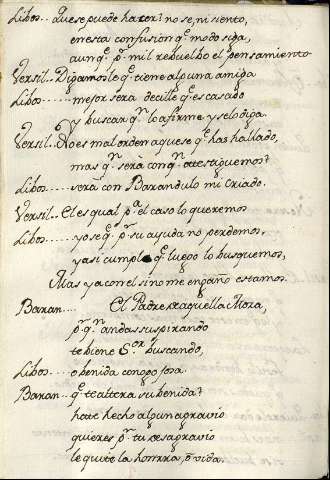 Libos.. Que se puede hazer? no se, ni siento,
en esta confusion q.e modo siga,
aunq.e p.r mil rebuelbo el pensamiento
Versil.. Digamosle q.e tiene alguna amiga
Libos..... mejor sera decille q.e es casado
y buscar q.n lo afirme y se lo diga.
Versil.. No es mal orden aquese q.e has hallado,
mas q.n será con q.n
Libos.... será con Barandulo mi criado.
Versil.. El es qual p.a el caso lo queremos
Libos..... yo se q.e p.r su ayuda no perdemos,
y asi cumple q.e luego lo busquemos,
Mas ya con el si no me engaño estamos.
Baran.... El Padre de aquella Moza,
p.r q.n andas suspirando
te biene S.or buscando,
Libos.... o benida
Baran.. q.e te altera su benida?
hate hecho algun agravio
quieres p.r tu desagravio
le quite la honrra, o vida.